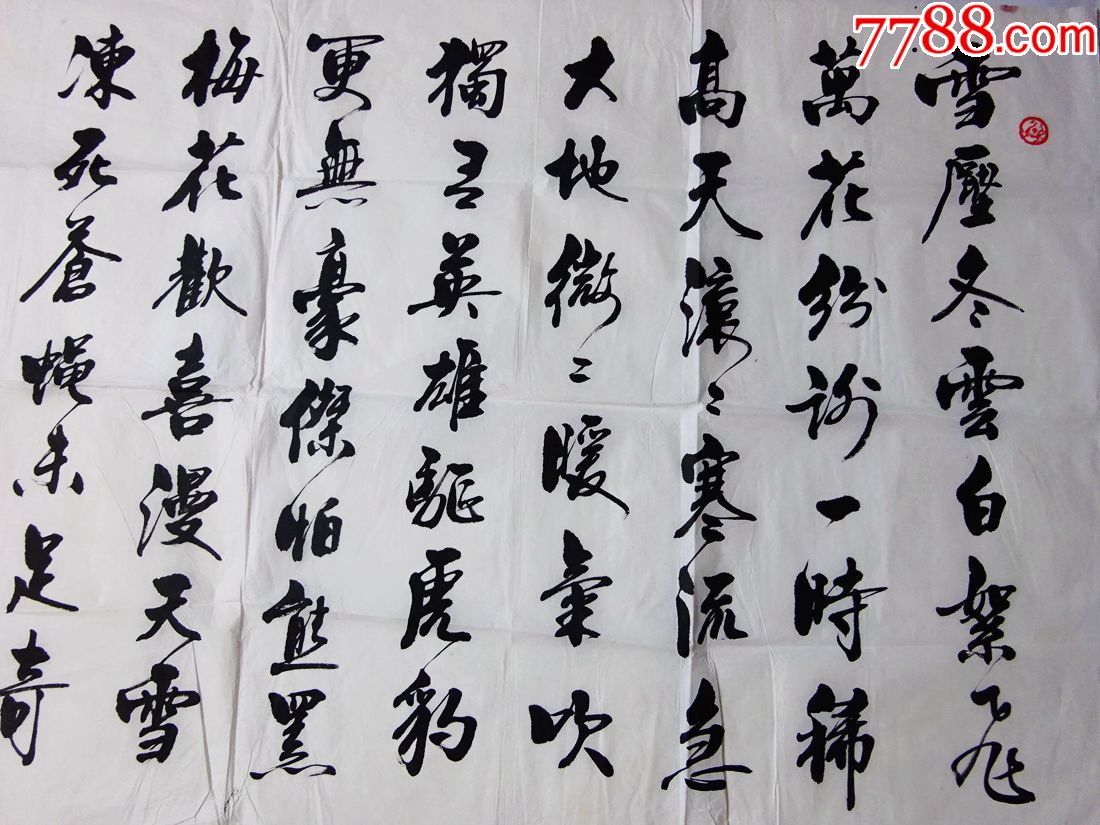 7788.com
雪壓冬雲白絮飛
萬花紛謝一時稀
高天滚〻寒流急
大地微〻暖氣吹
獨有英雄驅虎豹
更無豪傑怕熊羆
梅花歡喜漫天雪
凍死蒼蝇未足奇